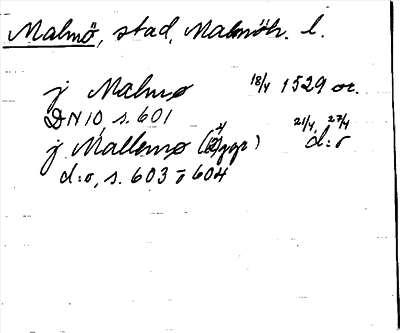 Malmö, stad, Malmöh. l.
j Malmø 18/4 1529 or.
DN 10, s. 601
j Mallemø (2 ggr) 21/4, 27/4 d:o
d:o, s. 603 o 604